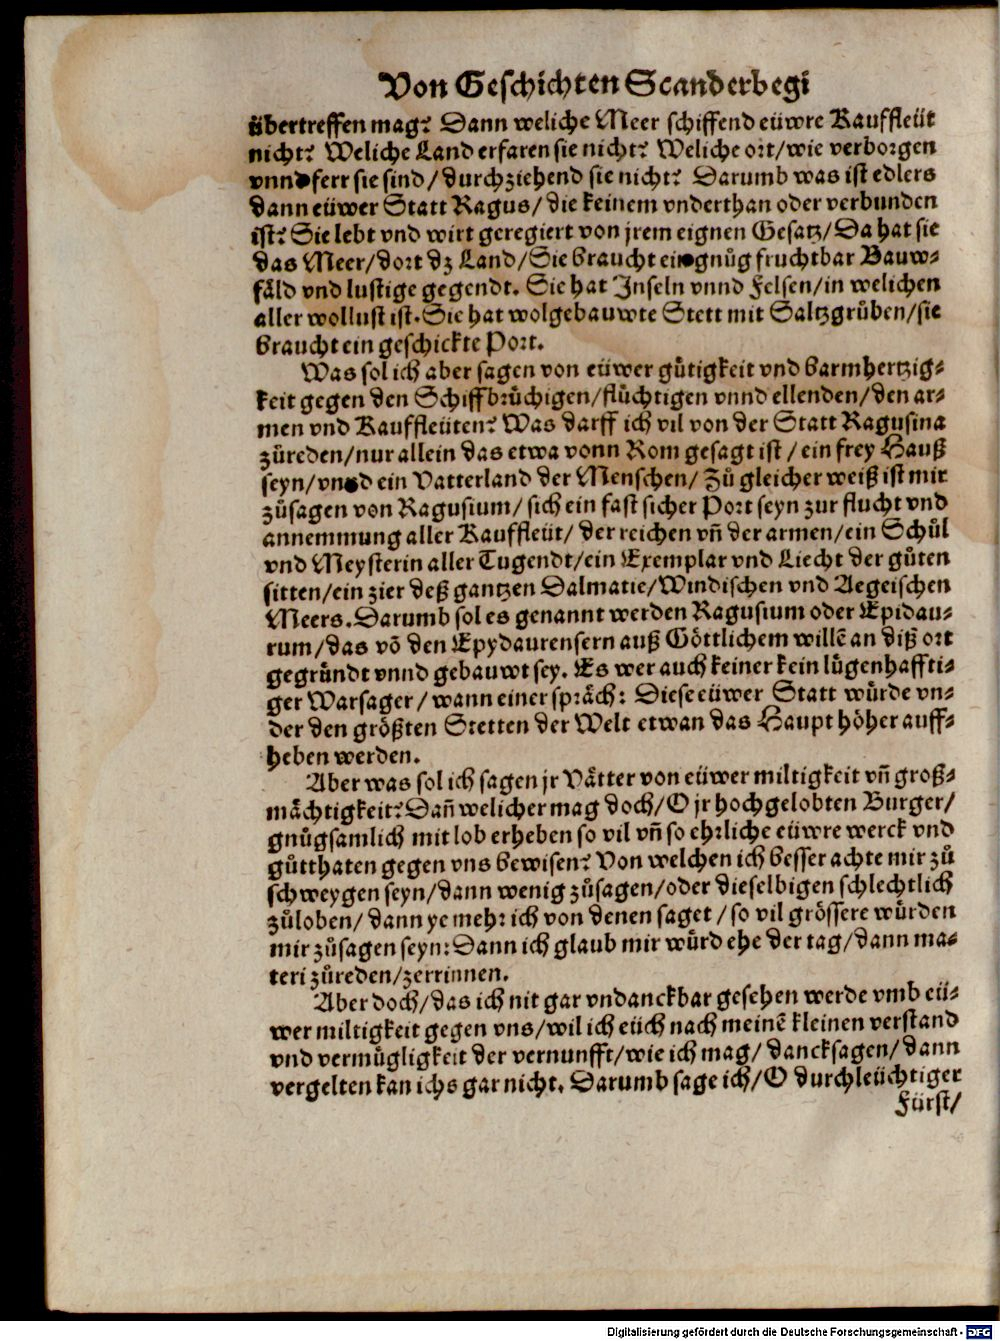 Von Geschichten Scanderbegi
übertreffen mag? Dann weliche Meer schiffend eüwre Kauffleüt
nicht? Weliche Land erfaren sie nicht? Weliche ort/wie verborgen
vnnd ferr sie sind/durchziehend sie nicht? Darumb was ist edlers
dann eüwer Statt Ragus/die keinem vnderthan oder verbunden
ist? Sie lebt vnd wirt geregiert von jrem eignen Gesatz/Da hat sie
das Meer/dort dz Land/Sie braucht ein gnůg fruchtbar Bauw-
fäld vnd lustige gegendt. Sie hat Inseln vnnd Felsen/in welichen
aller wollust ist. Sie hat wolgebauwte Stett mit Saltzgrůben/sie
braucht ein geschickte Port.
Was sol ich aber sagen von eüwer gůtigkeit vnd barmhertzig-
keit gegen den Schiffbrüchigen/flüchtigen vnnd ellenden/den ar-
men vnd Kauffleüten? Was darff ich vil von der Statt Ragusina
zůreden/nur allein das etwa vonn Rom gesagt ist/ein frey Hauß
seyn/vnnd ein Vatterland der Menschen/Zů gleicher weiß ist mir
zůsagen von Ragusium/sich ein fast sicher Port seyn zur flucht vnd
annemmung aller Kauffleüt/der reichen vñ der armen/ein Schůl
vnd Meysterin aller Tugendt/ein Exemplar vnd Liecht der gůten
sitten/ein zier deß gantzen Dalmatie/Windischen vnd Aegeischen
Meers. Darumb sol es genannt werden Ragusium oder Epidau-
rum/das võ den Epydaurensern auß Göttlichem willẽ an diß ort
gegründt vnnd gebauwt sey. Es wer auch keiner kein lůgenhaffti-
ger Warsager/wann einer spräch: Diese eüwer Statt würde vn-
der den größten Stetten der Welt etwan das Haupt höher auff-
heben werden.
Aber was sol ich sagen jr Vätter von eüwer miltigkeit vñ groß-
mächtigkeit? Dañ welicher mag doch/O jr hochgelobten Burger/
gnůgsamlich mit lob erheben so vil vñ so ehrliche eüwre werck vnd
gůtthaten gegen vns bewisen? Von welchen ich besser achte mir zů
schweygen seyn/dann wenig zůsagen/oder dieselbigen schlechtlich
zůloben/dann ye mehr ich von denen saget/so vil grössere würden
mir zůsagen seyn: Dann ich glaub mir würd ehe der tag/dann ma-
teri zůreden/zerrinnen.
Aber doch/das ich nit gar vndanckbar gesehen werde vmb eü-
wer miltigkeit gegen vns/wil ich eüch nach meinẽ kleinen verstand
vnd vermügligkeit der vernunfft/wie ich mag/dancksagen/dann
vergelten kan ichs gar nicht. Darumb sage ich/O durchleüchtiger
Fürst/
Digitalisierung gefördert durch die Deutsche Forschungsgemeinschaft - DFG